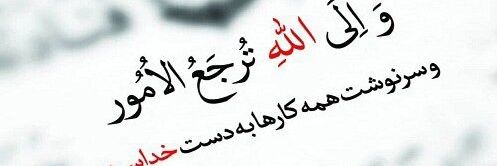 وَ اِلَی اللهِ تُرجَعُ الاُمُور
و سرنوشت همه کارها به دست